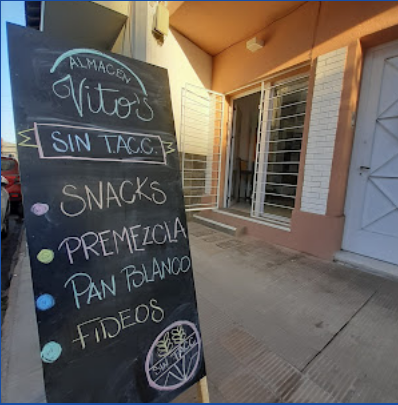 ALMACEN
Vito's
SIN T.A.C.C.
SNACKS
PREMEZCLA
PAN BLANCO
FIDEOS
SIN TACC